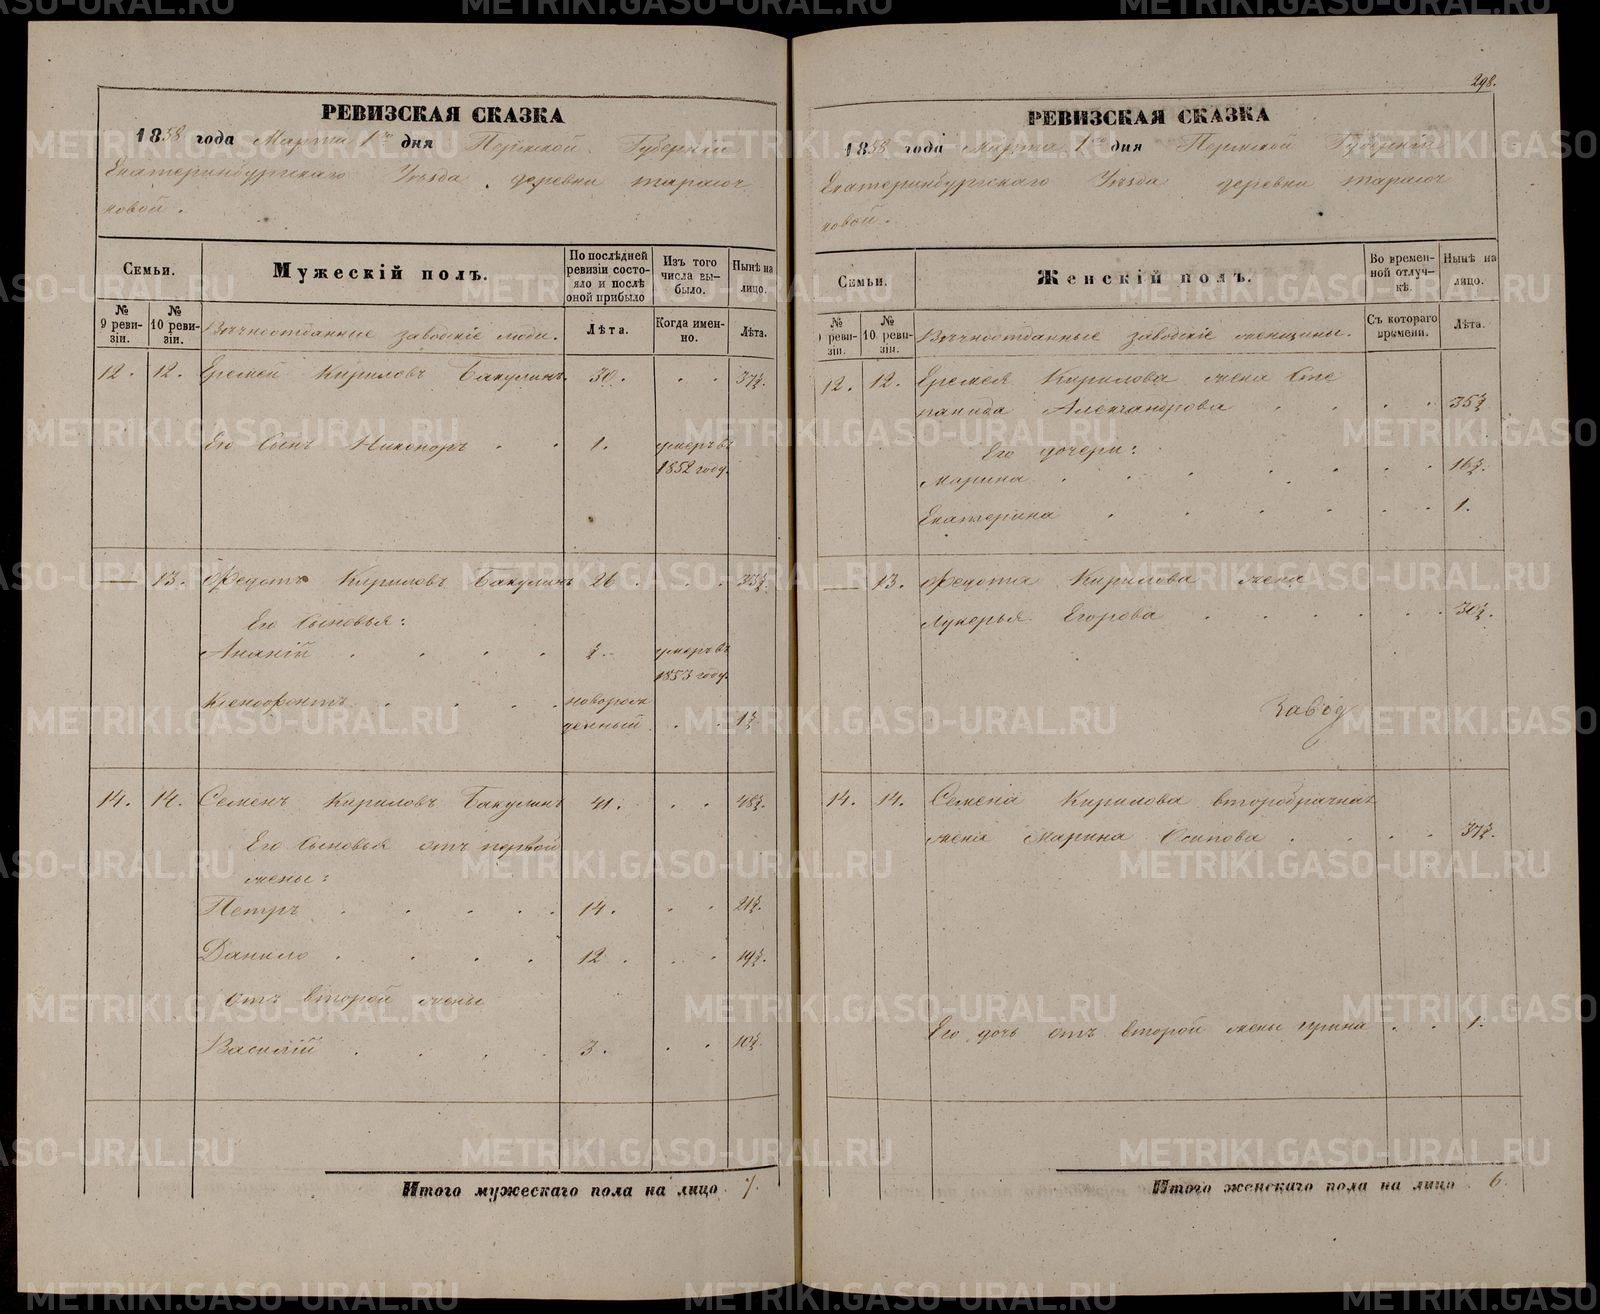 РЕВИЗСКАЯ СКАЗКА
1858 года Марта 1го дня Пермской Губерніи
Екатеринбургскаго Уѣзда, деревни
новой.
Семьи.
Мужескій полъ.
По послѣдней ревизіи состояло и послѣ оной прибыло
Изъ того числа выбыло.
Нынѣ на лицо.
№ 9 ревизіи.
№ 10 ревизіи.
Вѣчноотданные заводскіе люди.
Лѣта.
Когда именно.
Лѣта.
12. 12. Еремей Кириловъ Бакулинъ 30. . . 37½.
Его Сынъ Никоноръ . . 1. умеръ въ
1852 году.
— 13. Федотъ Кириловъ Бакулинъ 26 . . . 33½.
Его Сыновья:
Ананій . . . . ½. умеръ въ
1853 году.
Ксенофонтъ . . . . новорож
денный . . 1½.
14. 14. Семенъ Кириловъ Бакулинъ 41. . . 48½.
Его Сыновья отъ первой
жены:
Петръ . . . . . 14. . . 21½.
Данило . . . . 12 . . . 19½.
отъ второй жены
Василій . . . . 3. . . 10½.
Итого мужескаго пола на лицо 7.
298.
РЕВИЗСКАЯ СКАЗКА
1858 года Марта 1го дня Пермской Губерніи
Екатеринбургскаго Уѣзда деревни
новой.
Семьи.
Женскій полъ.
Во временной отлучкѣ.
Нынѣ на лицо.
№ 9 ревизіи.
№ 10 ревизіи.
Вѣчноотданные заводскіе женщины.
Съ котораго времени.
Лѣта.
12. 12. Еремея Кирилова жена Сте
панида Александрова . . . . 35½
Его дочери:
Марина . . . . . . . 16½.
Екатерина . . . . . . . 1.
— 13. Федота Кирилова жена
Лукерья Егорова . . . . . . . 30½.
Завод
14. 14. Семена Кирилова второбрачная
жена Марина Осипова . . . . 37½.
Его дочь отъ второй жены Ирина . . 1.
Итого женскаго пола на лицо 6.
METRIKI.GASO-URAL.RU